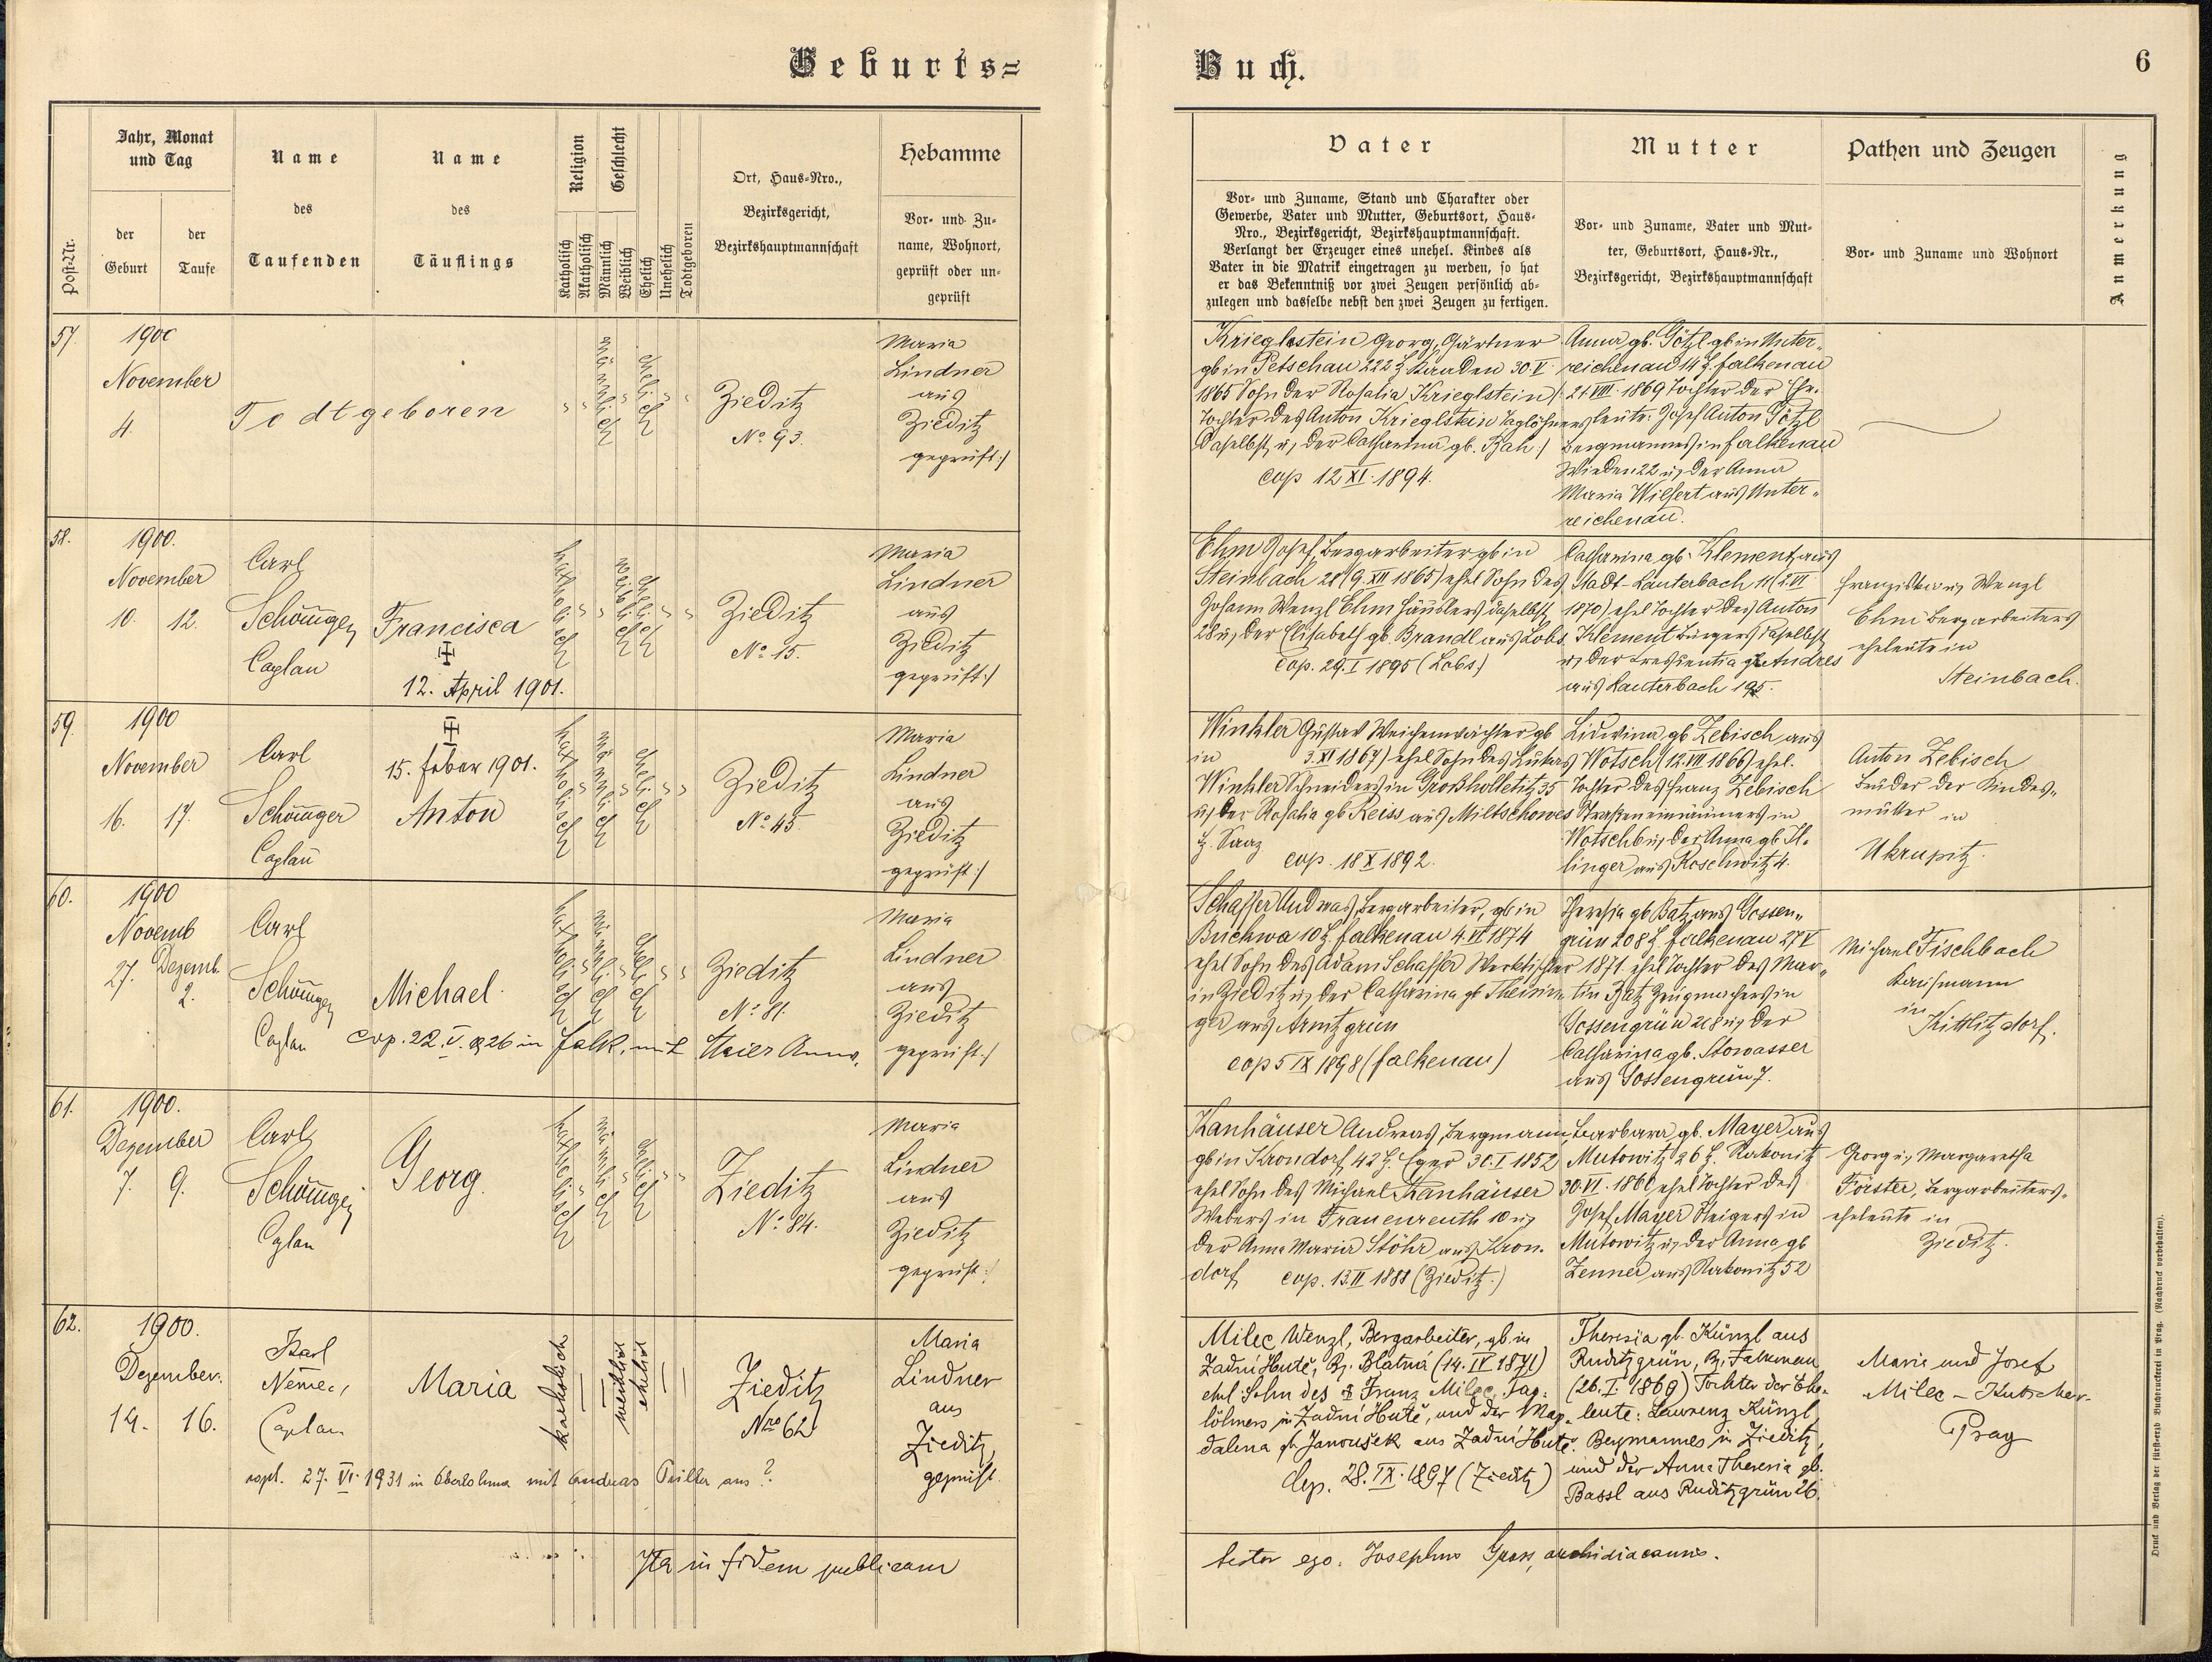 Geburts=
Buch.
6
Post-Nr.
Jahr, Monat
und Tag
der
Geburt
der
Taufe
Name
des
Taufenden
Name
des
Täuflings
Religion
Geschlecht
Katholisch
Akatholisch
Männlich
Weiblich
Ehelich
Unehelich
Todtgeboren
Ort, Haus-Nro.,
Bezirksgericht,
Bezirkshauptmannschaft
Hebamme
Vor- und Zu-
name, Wohnort,
geprüft oder un-
geprüft
Vater
Vor- und Zuname, Stand und Charakter oder
Gewerbe, Vater und Mutter, Geburtsort, Haus-
Nro., Bezirksgericht, Bezirkshauptmannschaft.
Verlangt der Erzeuger eines unehel. Kindes als
Vater in die Matrik eingetragen zu werden, so hat
er das Bekenntniß vor zwei Zeugen persönlich ab-
zulegen und dasselbe nebst den zwei Zeugen zu fertigen.
Mutter
Vor- und Zuname, Vater und Mut-
ter, Geburtsort, Haus-Nr.,
Bezirksgericht, Bezirkshauptmannschaft
Pathen und Zeugen
Vor- und Zuname und Wohnort
Anmerkung
57.
1900
November
4.
Todtgeboren
männlich
ehelich
Zieditz
No. 93.
Maria
Lindner
aus
Zieditz
geprüft:/
Krieglstein Georg, Gärtner
gb in Petschau 222 Kaaden 30. V
1865 Sohn der Rosalia Krieglstein /:
Tochter des Anton Krieglstein Taglöhners
daselbst u, der Catharina gb. :/
cop 12 XI. 1894.
Anna gb. Götzl gb in Unter-
reichenau 14 Falkenau
21 VIII. 1869 Tochter der Ehe-
leute: Josef Anton Götzl
Bergmannes in Falkenau
Wieden 22 u, der Anna
Maria Wilfert aus Unter-
reichenau.
58.
1900.
November
10. 12.
Carl
Caplan
Francisca
12. April 1901.
katholisch
weiblich
ehelich
Zieditz
No. 15.
Maria
Lindner
aus
Zieditz
geprüft:/
Ehm Josef, Bergarbeiter gb in
Steinbach 28 (9. XII 1865) ehel Sohn des
Johann Wenzl Ehm Häuslers daselbst
28 u, der Elisabeth gb. Brandl aus Lobs
Cop. 29. I 1895 (Lobs)
Catharina gb. Klement aus
Stadt-Lauterbach 11 (2. VI
1870) ehel Tochter des Anton
Klement Bürgers daselbst
u, der Kreszentia gb Andres
aus Lauterbach 195.
Franziska u, Wenzl
Ehm Bergarbeiters
eheleute in
Steinbach.
59.
1900
November
16. 17.
Carl
Caplan
15. Feber 1901.
Anton
katholisch
männlich
ehelich
Zieditz
No. 45.
Maria
Lindner
aus
Zieditz
geprüft:/
Winkler Gustav Weichenwächter gb
in 3. XI 1867) ehel Sohn des Lukas
Winkler Schneiders in Großholletitz 35
u, der Rosalia gb Reiss aus Miltschowes
Saaz
cop. 18 X 1892.
Lidwina, gb Zebisch aus
Wotsch (12. VIII 1866) ehel.
Tochter des Franz Zebisch
Straßeneinräumers in
Wotsch 6 u, der Anna gb Il-
linger aus Roschwitz 4.
Anton Zebisch
Bruder der Kindes-
mutter in
Ukrupitz.
60.
1900
Novemb
27. Dezemb.
2.
Carl
Caplan
Michael
cop. 22. V. 1926 in Falk. mit Maier Anna.
katholisch
männlich
ehelich
Zieditz
No. 81.
Maria
Lindner
aus
Zieditz
geprüft:/
Schaffer Andreas, Bergarbeiter, gb in
Buchwa 10 Falkenau 4. VI 1874
ehel Sohn des Adam Schaffer Werktischler
in Zieditz u, der Catharina gb Theisin-
ger aus Arnitzgrün
cop 5 IX 1898 (Falkenau)
Theresia gb. Batz aus Gossen-
grün 208 Falkenau 27 V
1871. ehel Tochter des Mar-
tin Batz Zeugmachers in
Gossengrün 208 u, der
Catharina gb. Stowasser
aus Gossengrün 7.
Michael Fischbach
Kaufmann
in
Kittlitzdorf.
61.
1900.
Dezember
7. 9.
Carl
Caplan
Georg
katholisch
männlich
ehelich
Zieditz
No. 84.
Maria
Lindner
aus
Zieditz
geprüft:/
Kanhäuser Andreas, Bergmann
gb in Krondorf 42 Eger 30. I 1852
ehel Sohn des Michael Kanhäuser
Webers in Frauenreuth 10 u,
der Anna Maria Stöhr aus Kron-
dorf cop. 13. II 1888 (Zieditz.)
Barbara gb. Mayer aus
Mutowitz 26 Rakonitz
30. VI. 1860 ehel Tochter des
Josef Mayer Steigers in
Mutowitz u, der Anna gb
Zenner aus Rakonitz 52
Georg u, Margaretha
Förster, Bergarbeiters-
eheleute in
Zieditz.
62.
1900.
Dezember.
14. 16.
Karl
Němec,
Caplan
Maria
katholisch
weiblich
ehelich
Zieditz
Nro 62
Maria
Lindner
aus
Zieditz,
geprüft.
copl. 27. VI. 1931 in Oberlohma mit Andreas aus ?
Milec Wenzl, Bergarbeiter, gb. in
Zadní Hutě, Bz. Blatná (14. IV 1871)
ehel Sohn des Franz Milec, Tag-
löhners in Zadní Hutě, und der Mag-
dalena gb. Janoušek aus Zadní Hutě.
Cop. 28. IX. 1897 (Zieditz)
Theresia gb. Künzl aus
Ruditzgrün, Bz. Falkenau
(26. I. 1869) Tochter der Ehe-
leute: Laurenz Künzl,
Bergmannes in Zieditz,
und der Anna Theresia gb.
Bassl aus Ruditzgrün 26.
Marie und Josef
Milec - Kutscher-
Prag
Ita in fidem publicam
testor ego: Josephus Gross, archidiaconus.
Druck und Verlag der fürst-erzb. Buchdruckerei in Prag. (Nachdruck vorbehalten).